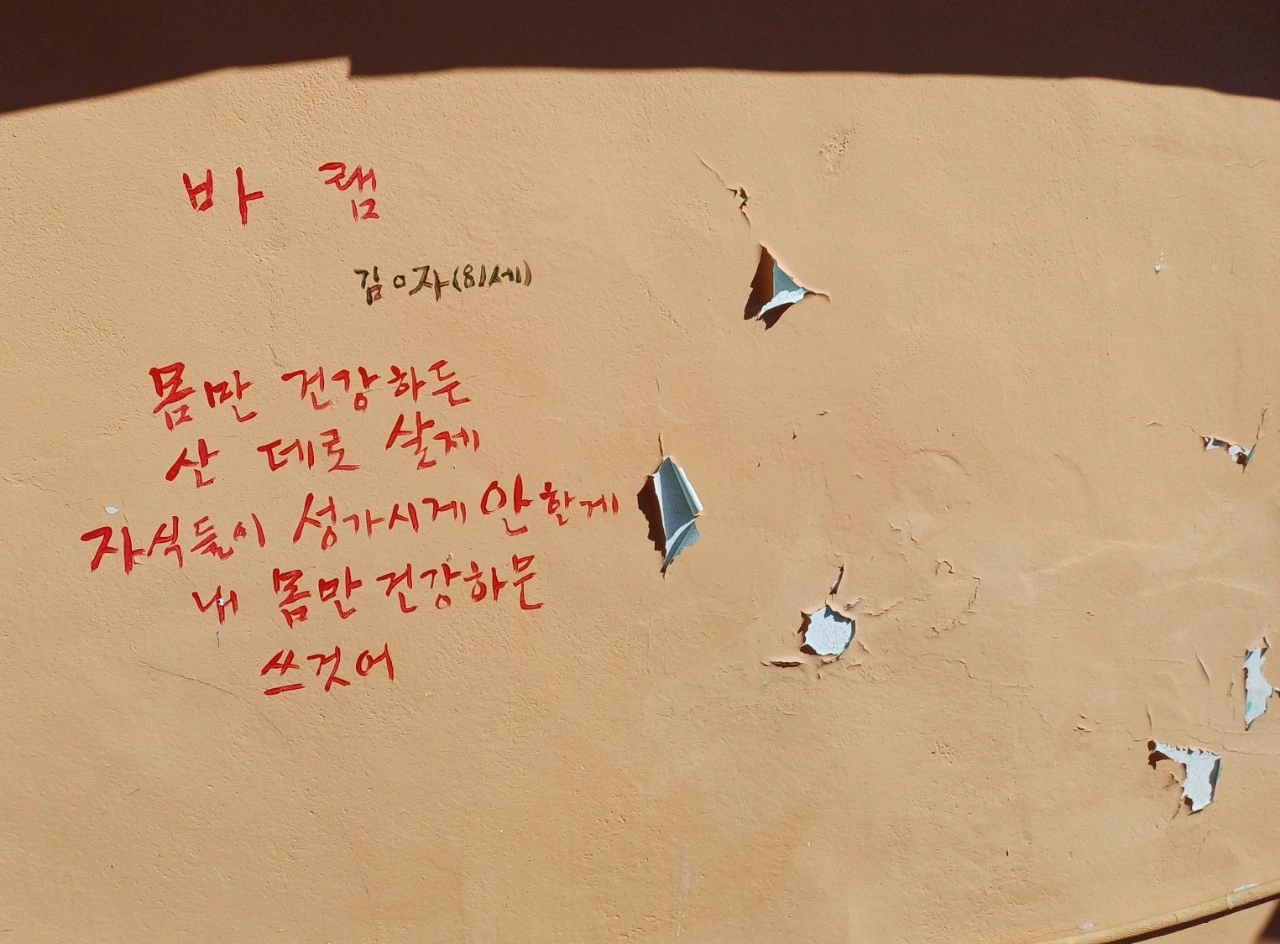 바램
김ㅇ자(81세)
몸만 건강하든
산 데로 살제
자식들이 성가시게 안할게
내 몸만 건강하문
쓰것어